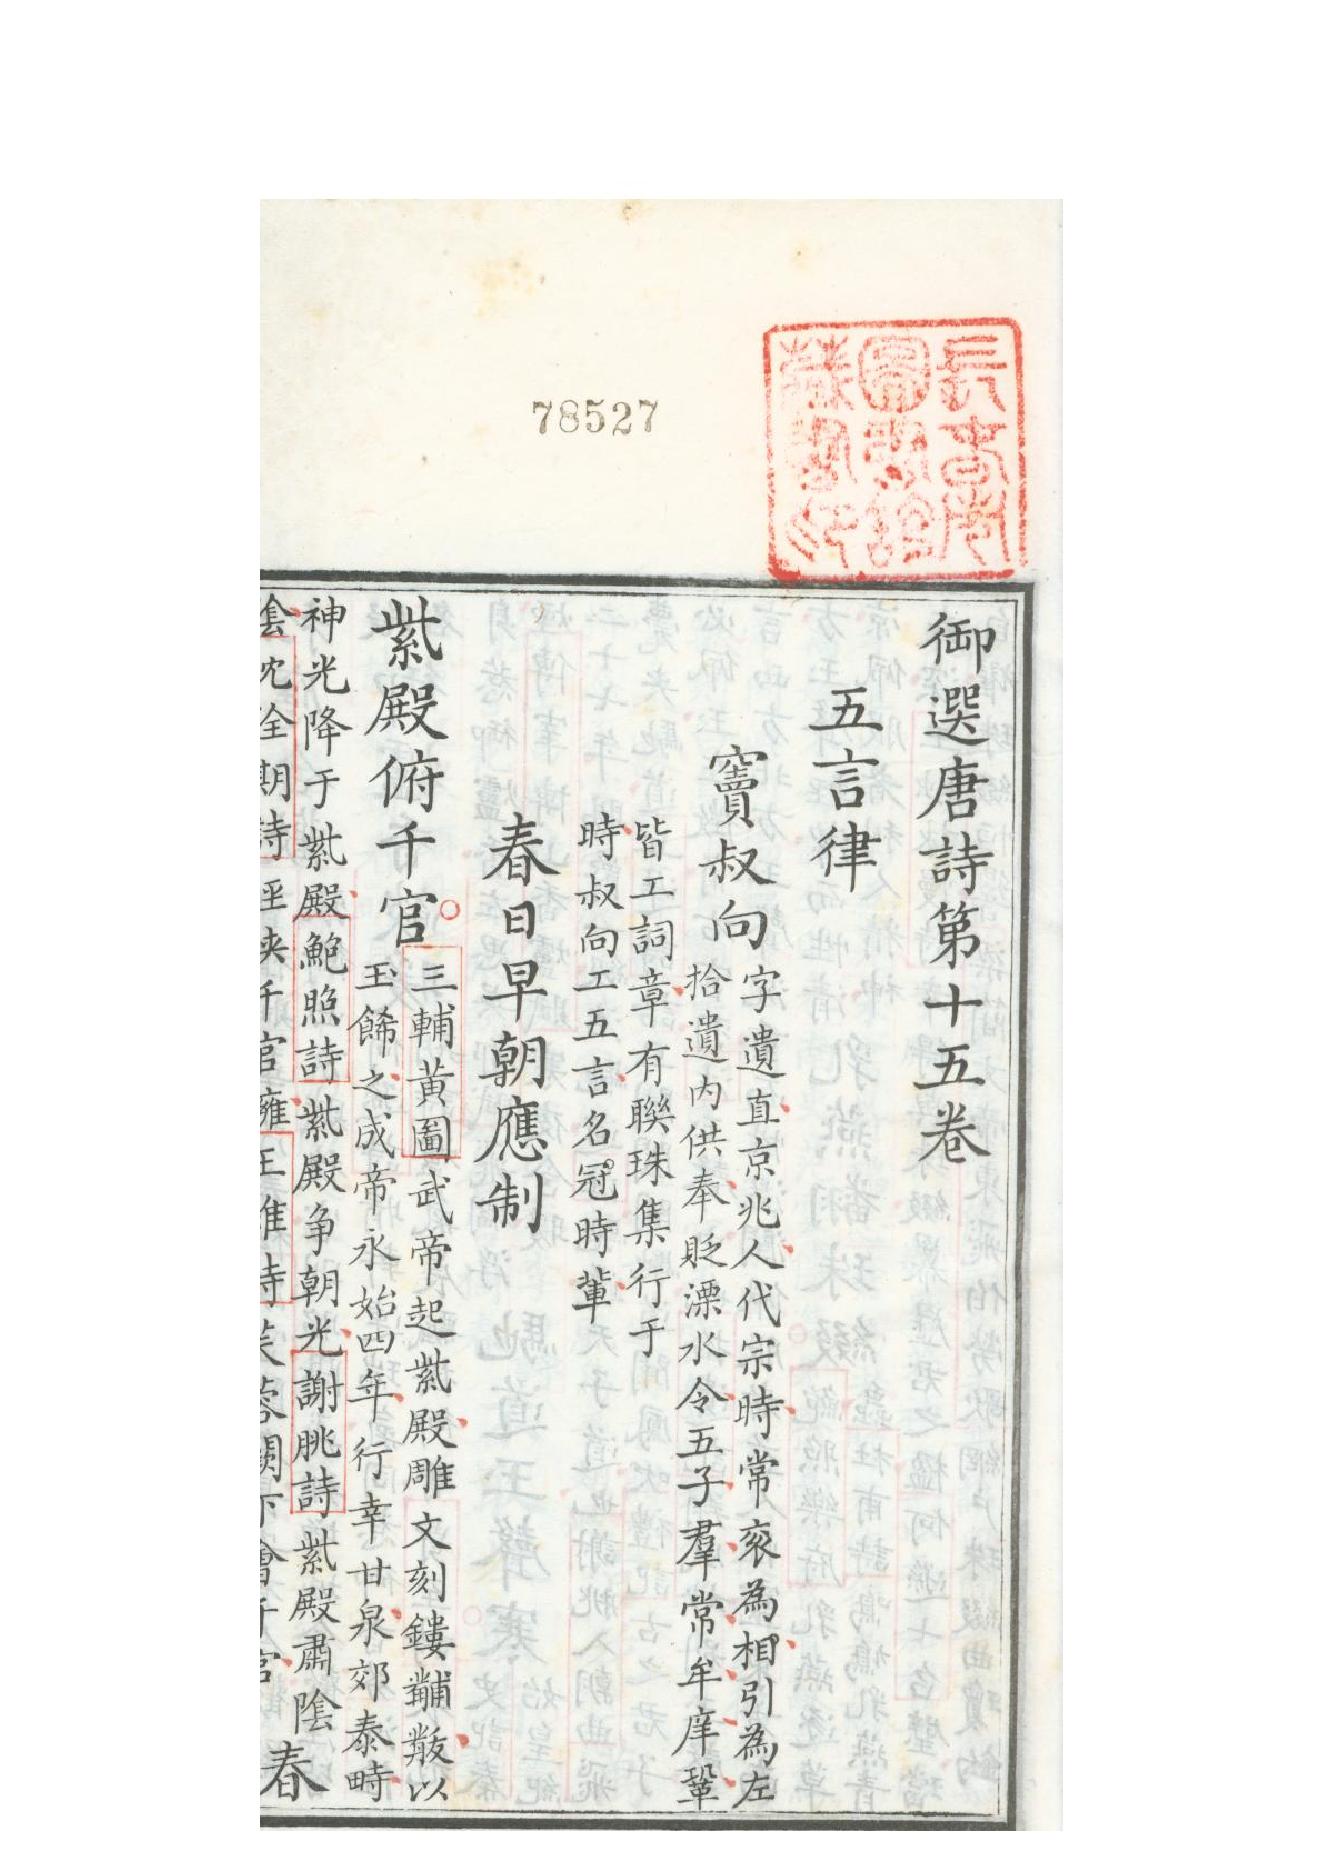 78527
長春市
圖書館
藏書印
御選唐詩第十五卷
五言律
竇叔向字遺直京兆人代宗時常衮為相引為左
拾遺內供奉貶溧水令五子羣常牟庠鞏
皆工詞章有聯珠集行于
時叔向工五言名冠時輩
春日早朝應制
紫殿俯千官
三輔黃圖武帝起紫殿雕文刻鏤黼黻以
玉餙之成帝永始四年行幸甘泉郊泰畤
神光降于紫殿鮑照詩紫殿争朝光謝朓詩紫殿肅陰
陰沈佺期詩徑狹千官擁王維詩芙蓉闕下會千官
春